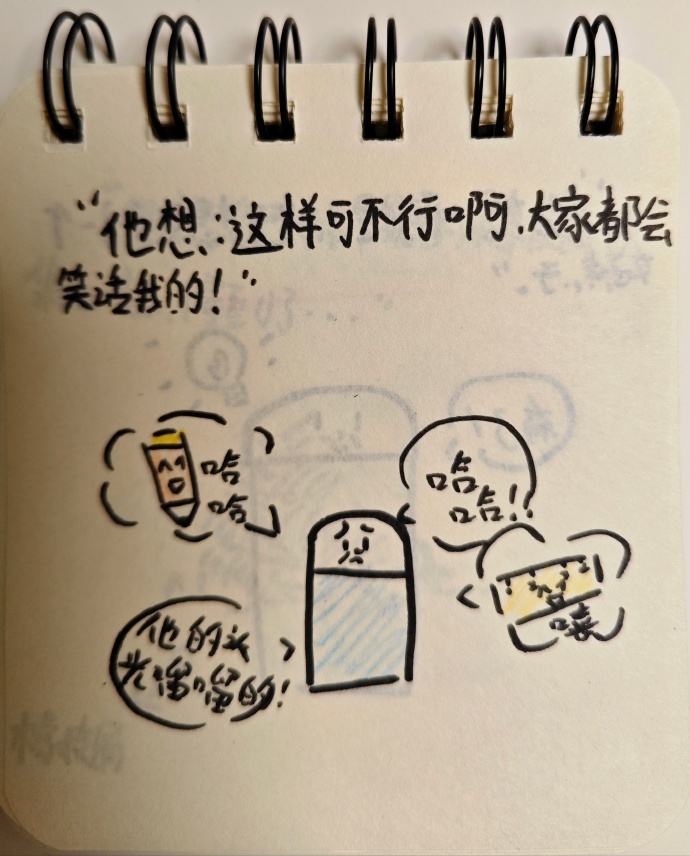 “他想:这样可不行啊,大家都会
笑话我的!”
哈
哈
哈
哈!!
他的头
光溜溜的!
嘻